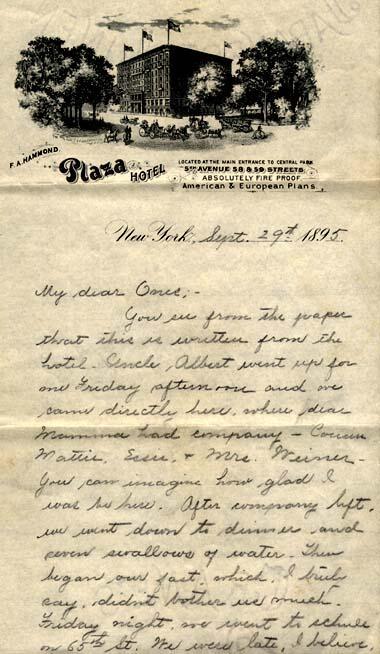 F. A. HAMMOND.
Plaza HOTEL
LOCATED AT THE MAIN ENTRANCE TO CENTRAL PARK
5TH AVENUE 58 & 59 STREETS
ABSOLUTELY FIRE PROOF
American & European Plans.
New York, Sept. 29th 1895.
My dear Ones;-
You see from the paper
that this is written from the
hotel. Uncle Albert went up for
me Friday afternoon and we
came directly here, where dear
Mamma had company – Cousin
Mattie, Essie, & Mrs. Weiner –
You can imagine how glad I
was to be here. After company left,
we went down to dinner and
seven swallows of water. Then
began our fast, which, I truly
say, didn't bother us much.
Friday night, we went to schule
on 65th St. We were late, I believe,